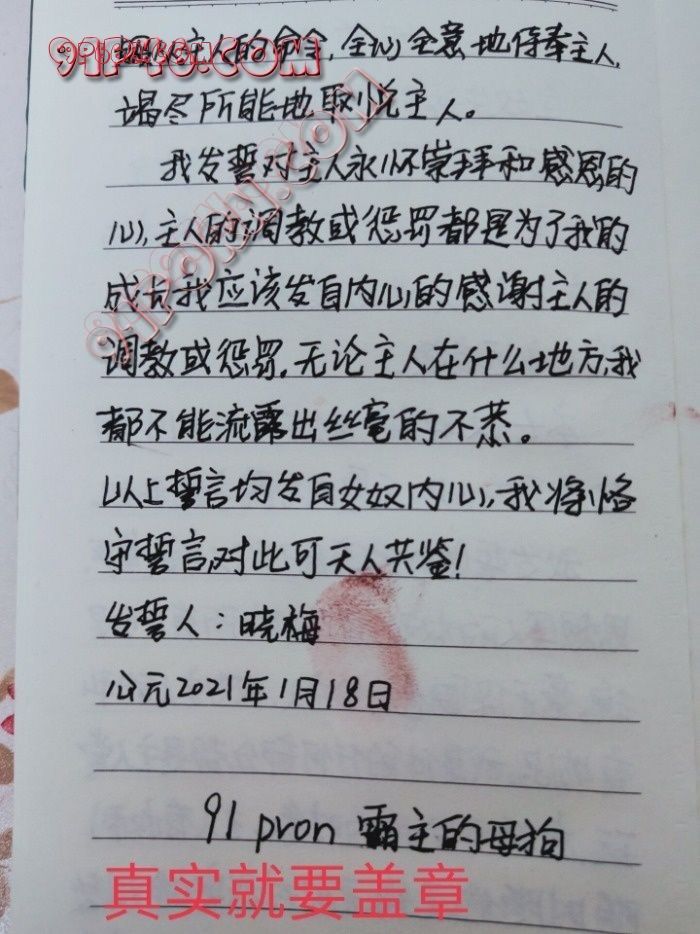 主人的命令,全心全意地侍奉主人,
91P46.COM
竭尽所能地取悦主人。
我发誓对主人永怀崇拜和感恩的
心,主人的调教或惩罚都是为了我的
成长我应该发自内心的感谢主人的
调教或惩罚,无论主人在什么地方,我
都不能流露出丝毫的不恭。
以上誓言均发自女奴内心,我将恪
守誓言,对此可天人共鉴!
发誓人:晓梅
公元2021年1月18日
91 pron 霸主的母狗
真实就要盖章